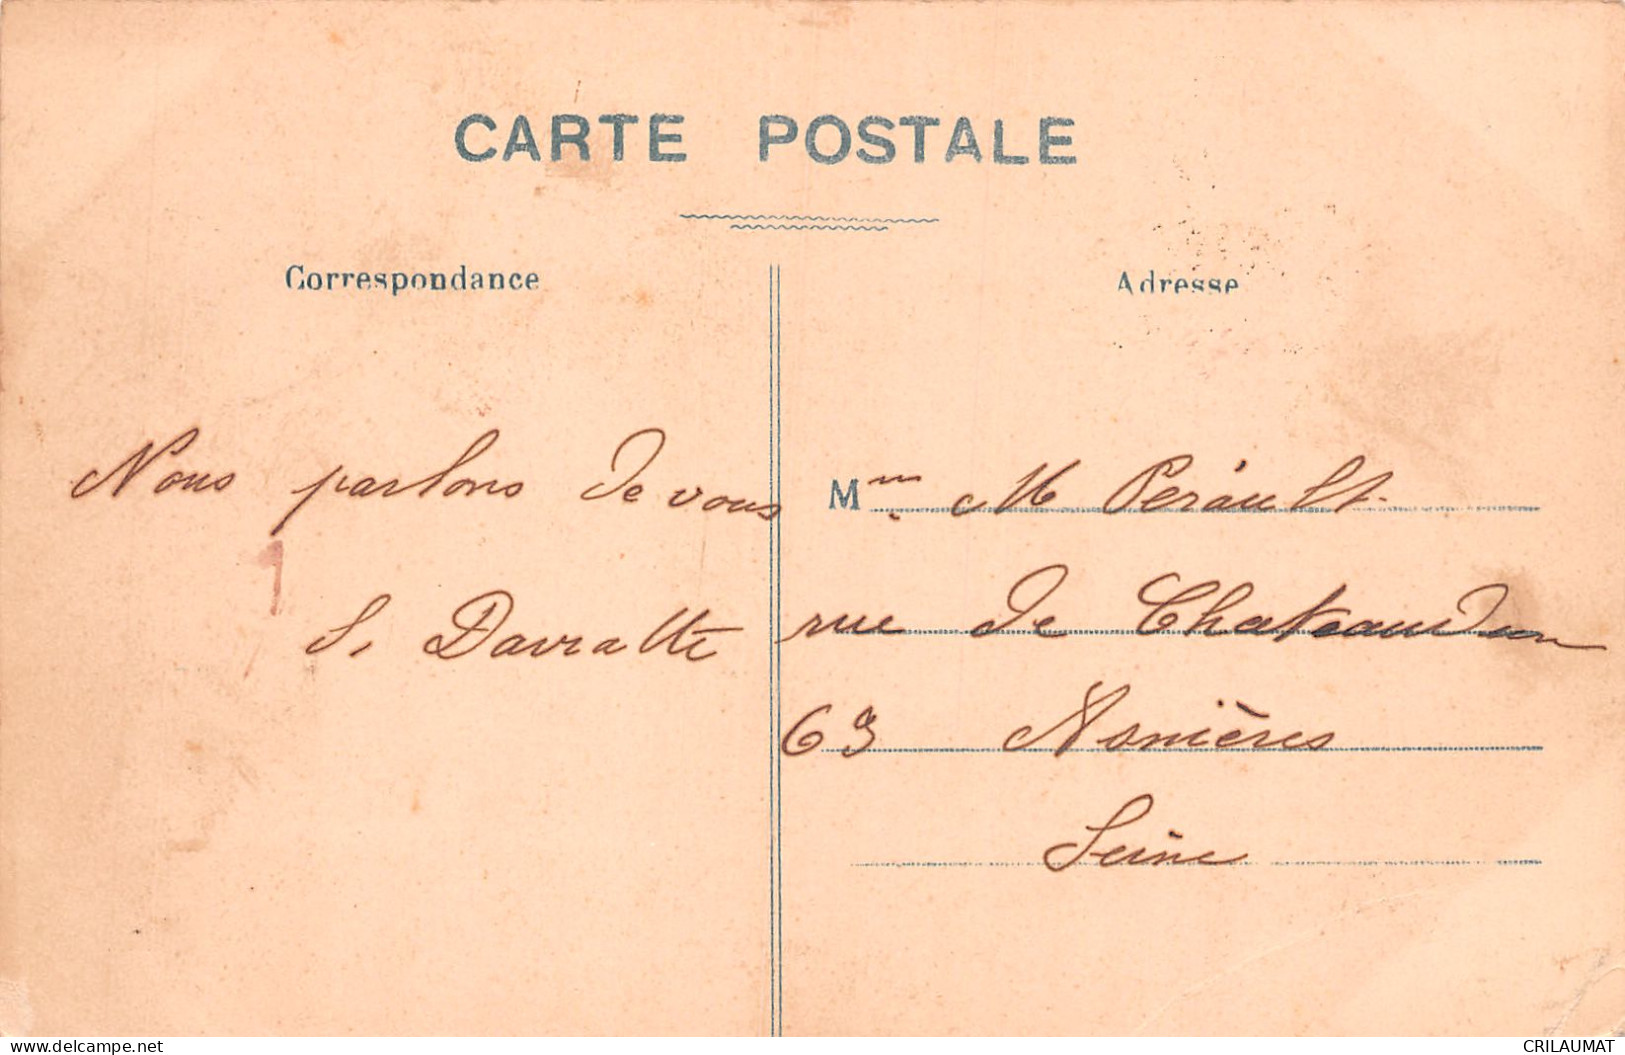 CARTE POSTALE
Correspondance
Adresse
Nous parlons de vous
S. Davratte
Mme M Perault
rue de Chateaudun
63 Asnières
Seine
www.delcampe.net
CRILAUMAT